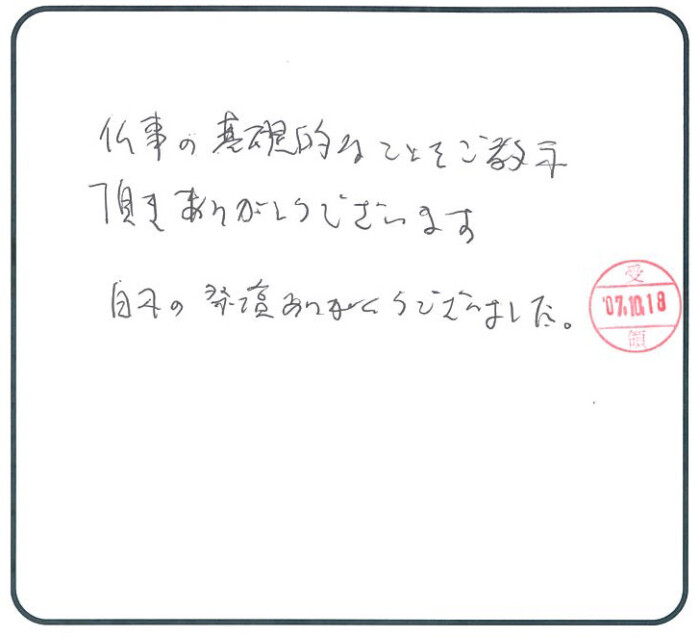 仏事の基礎的なことをご教示
頂きありがとうございます
白木の祭壇ありがとうございました。
受
'07.10.18
領